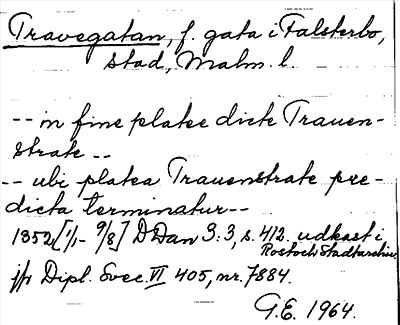 Travegatan, f. gata i Falsterbo,
stad, Malm. l.
-- in fine platee dicte Trauen-
strate --
-- ubi platea Trauenstrate pre-
dicta terminatur --
1352 [1/1 - 9/8] D Dan 3:3, s. 412. udkast i
Rostock Stadtarchiv.
jfr Dipl. Svec. VI 405, nr. 7884.
G.E. 1964.